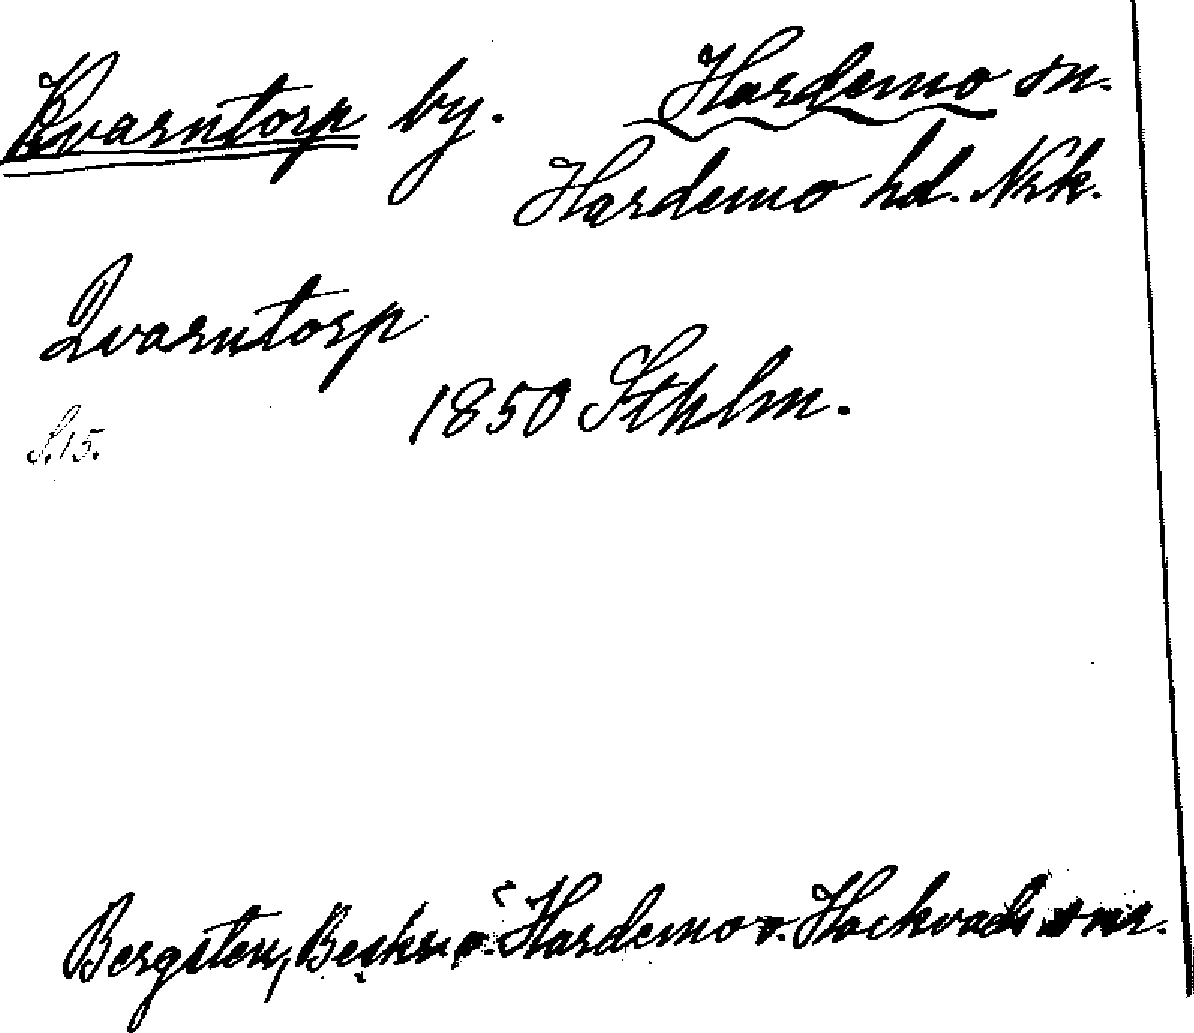 Kvarntorp by. Hardemo sn.
Hardemo hd. Nrk.
Qvarntorp
1850 Sthlm.
S. 15.
Bergsten, Beskr. o. Hardemo o. Hackvads snr.